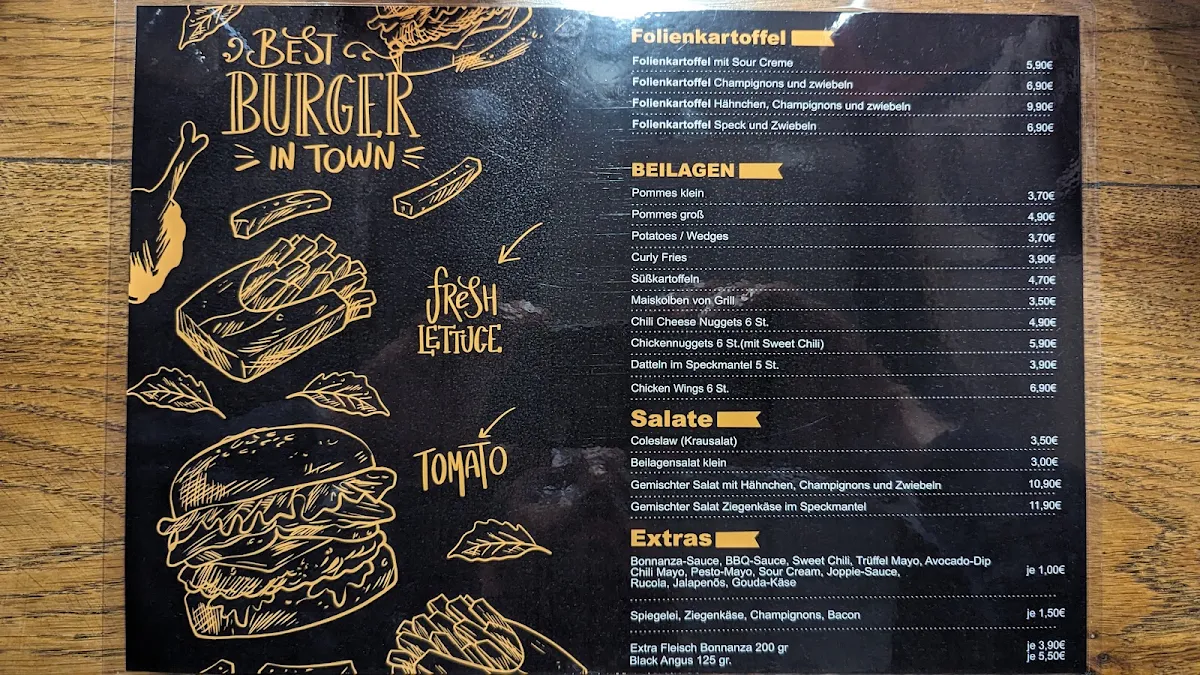 BEST
BURGER
IN TOWN
FRESH
LETTUCE
TOMATO
Folienkartoffel
Folienkartoffel mit Sour Creme 5,90€
Folienkartoffel Champignons und zwiebeln 6,90€
Folienkartoffel Hähnchen, Champignons und zwiebeln 9,90€
Folienkartoffel Speck und Zwiebeln 6,90€
BEILAGEN
Pommes klein 3,70€
Pommes groß 4,90€
Potatoes / Wedges 3,70€
Curly Fries 3,90€
Süßkartoffeln 4,70€
Maiskolben von Grill 3,50€
Chili Cheese Nuggets 6 St. 4,90€
Chickennuggets 6 St.(mit Sweet Chili) 5,90€
Datteln im Speckmantel 5 St. 3,90€
Chicken Wings 6 St. 6,90€
Salate
Coleslaw (Krausalat) 3,50€
Beilagensalat klein 3,00€
Gemischter Salat mit Hähnchen, Champignons und Zwiebeln 10,90€
Gemischter Salat Ziegenkäse im Speckmantel 11,90€
Extras
Bonnanza-Sauce, BBQ-Sauce, Sweet Chili, Trüffel Mayo, Avocado-Dip
Chili Mayo, Pesto-Mayo, Sour Cream, Joppie-Sauce, je 1,00€
Rucola, Jalapenõs, Gouda-Käse
Spiegelei, Ziegenkäse, Champignons, Bacon je 1,50€
Extra Fleisch Bonnanza 200 gr je 3,90€
Black Angus 125 gr. je 5,50€